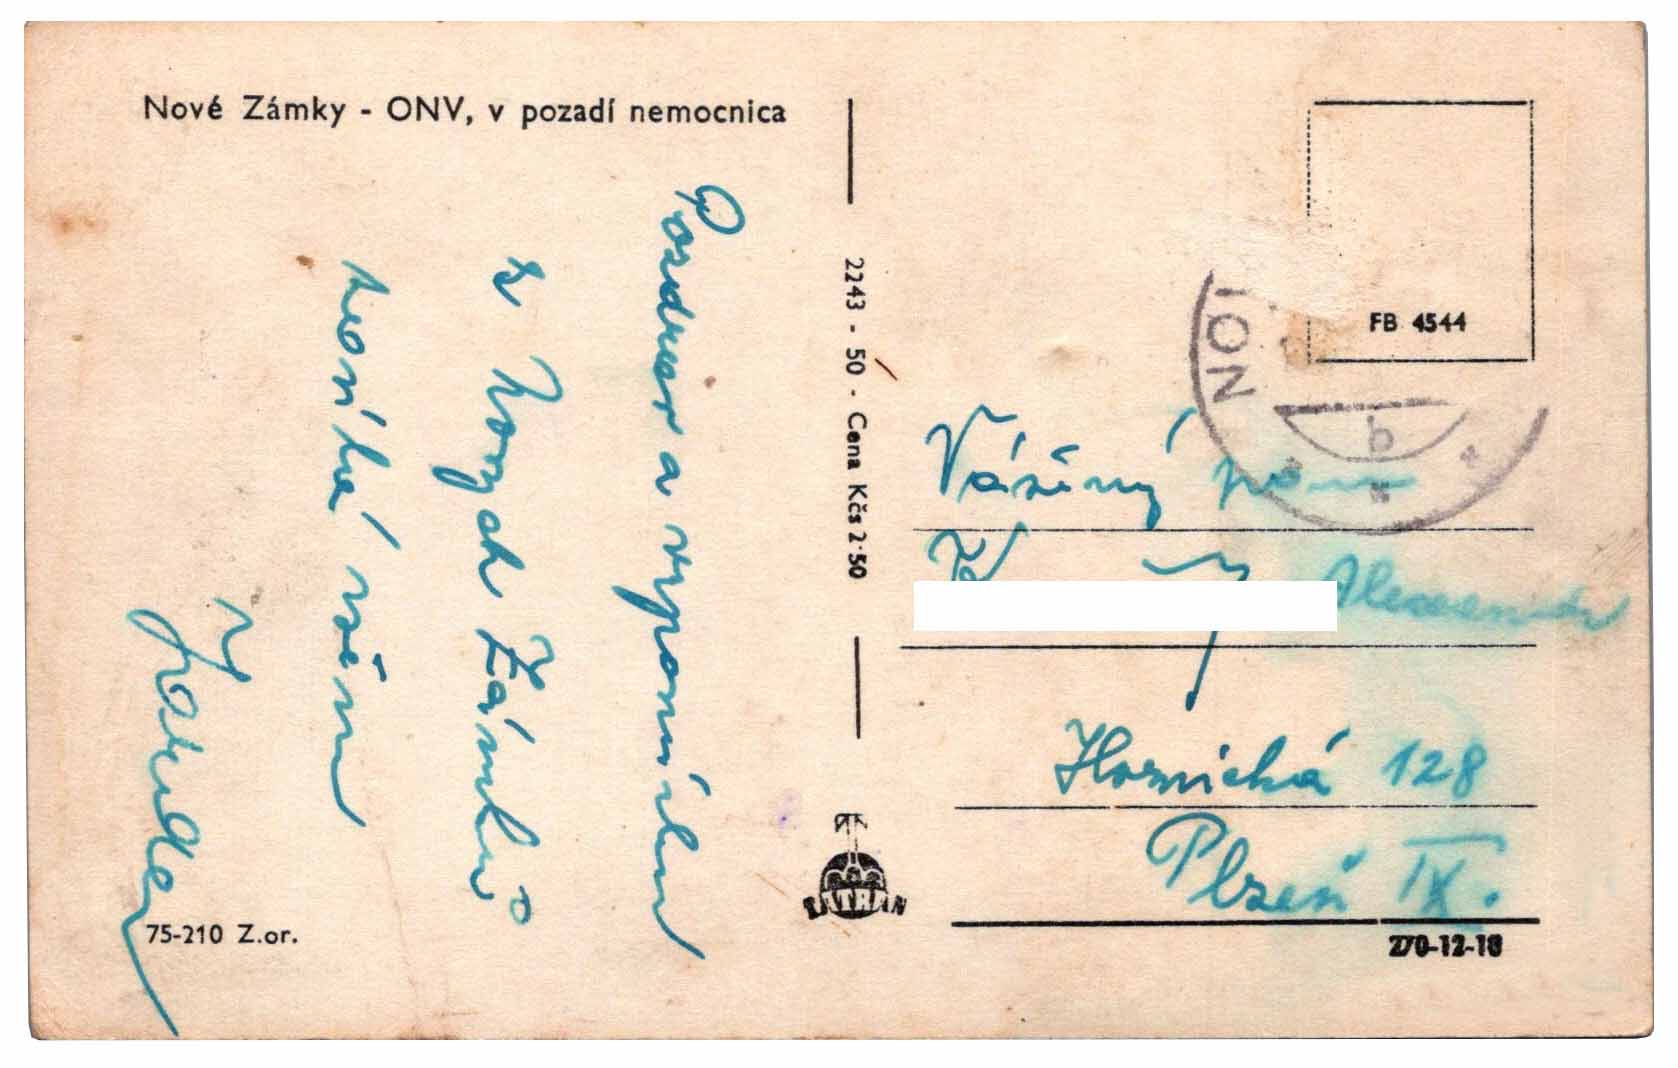 Nové Zámky - ONV, v pozadí nemocnica
Pozdrav a vzpomínku
z Nových Zámků
všem
75-210 Z.or.
2243 - 50 - Cena Kčs 2·50
TATRAN
FB 4544
NOV
b
Vážený pan
Alexander
Hornická 128
Plzeň IX.
270-12-18